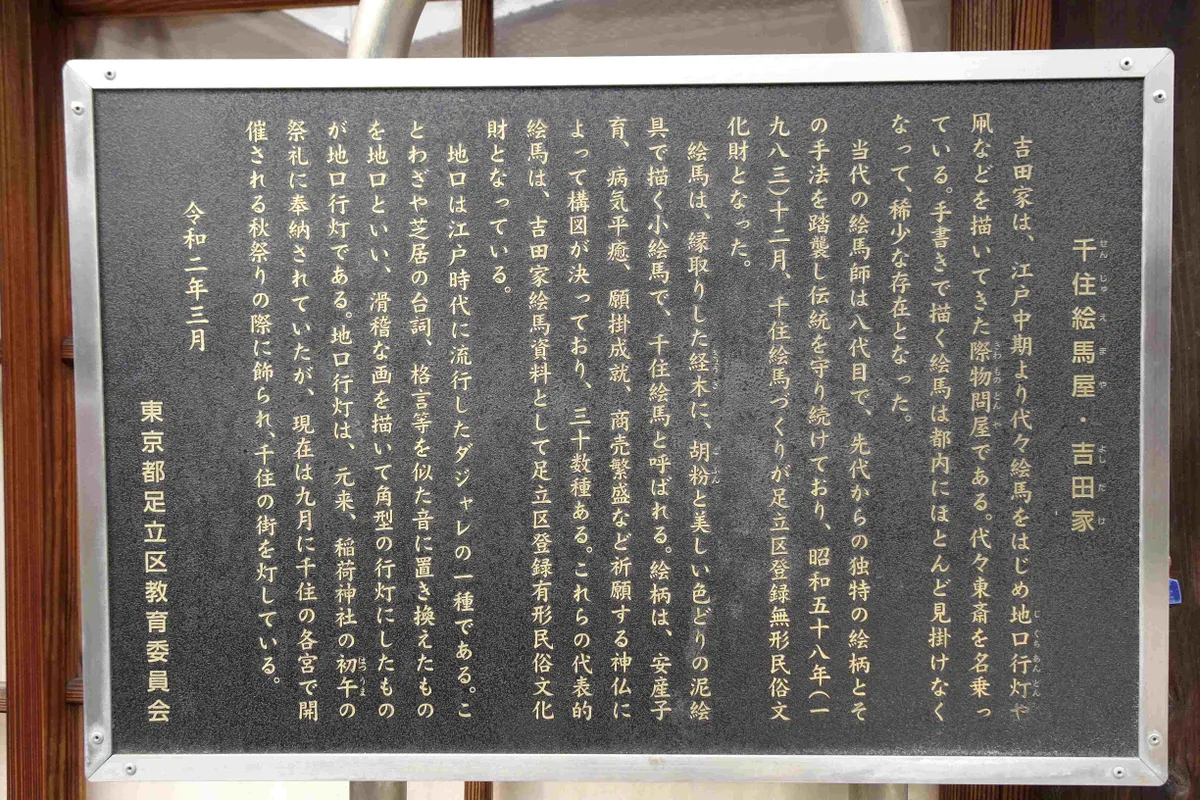 千住絵馬屋・吉田家
吉田家は、江戸中期より代々絵馬をはじめ地口行灯や
凧などを描いてきた際物問屋である。代々東斎を名乗っ
ている。手書きで描く絵馬は都内にほとんど見掛けなく
なって、稀少な存在となった。
当代の絵馬師は八代目で、先代からの独特の絵柄とそ
の手法を踏襲し伝統を守り続けており、昭和五十八年(一
九八三)十二月、千住絵馬づくりが足立区登録無形民俗文
化財となった。
絵馬は、縁取りした経木に、胡粉と美しい色どりの泥絵
具で描く小絵馬で、千住絵馬と呼ばれる。絵柄は、安産子
育、病気平癒、願掛成就、商売繁盛など祈願する神仏に
よって構図が決っており、三十数種ある。これらの代表的
絵馬は、吉田家絵馬資料として足立区登録有形民俗文化
財となっている。
地口は江戸時代に流行したダジャレの一種である。こ
とわざや芝居の台詞、格言等を似た音に置き換えたもの
を地口といい、滑稽な画を描いて角型の行灯にしたもの
が地口行灯である。地口行灯は、元来、稲荷神社の初午の
祭礼に奉納されていたが、現在は九月に千住の各宮で開
催される秋祭りの際に飾られ、千住の街を灯している。
令和二年三月
東京都足立区教育委員会